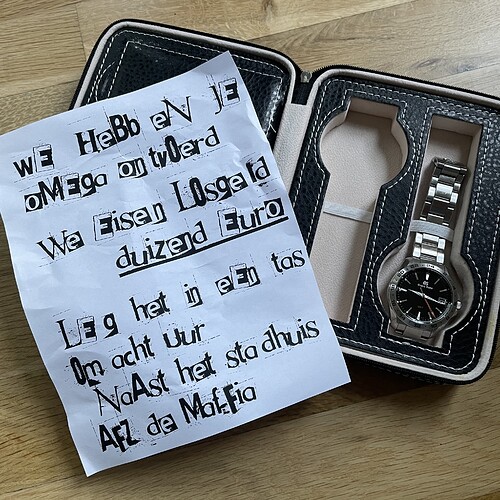 wE HeBb eN jE
oMEga ontvOerd
We Eisen LOsgeld
duizend Euro
LEg het in eEn tas
Om acht uur
NaAst het stadhuis
AFZ de MafFia